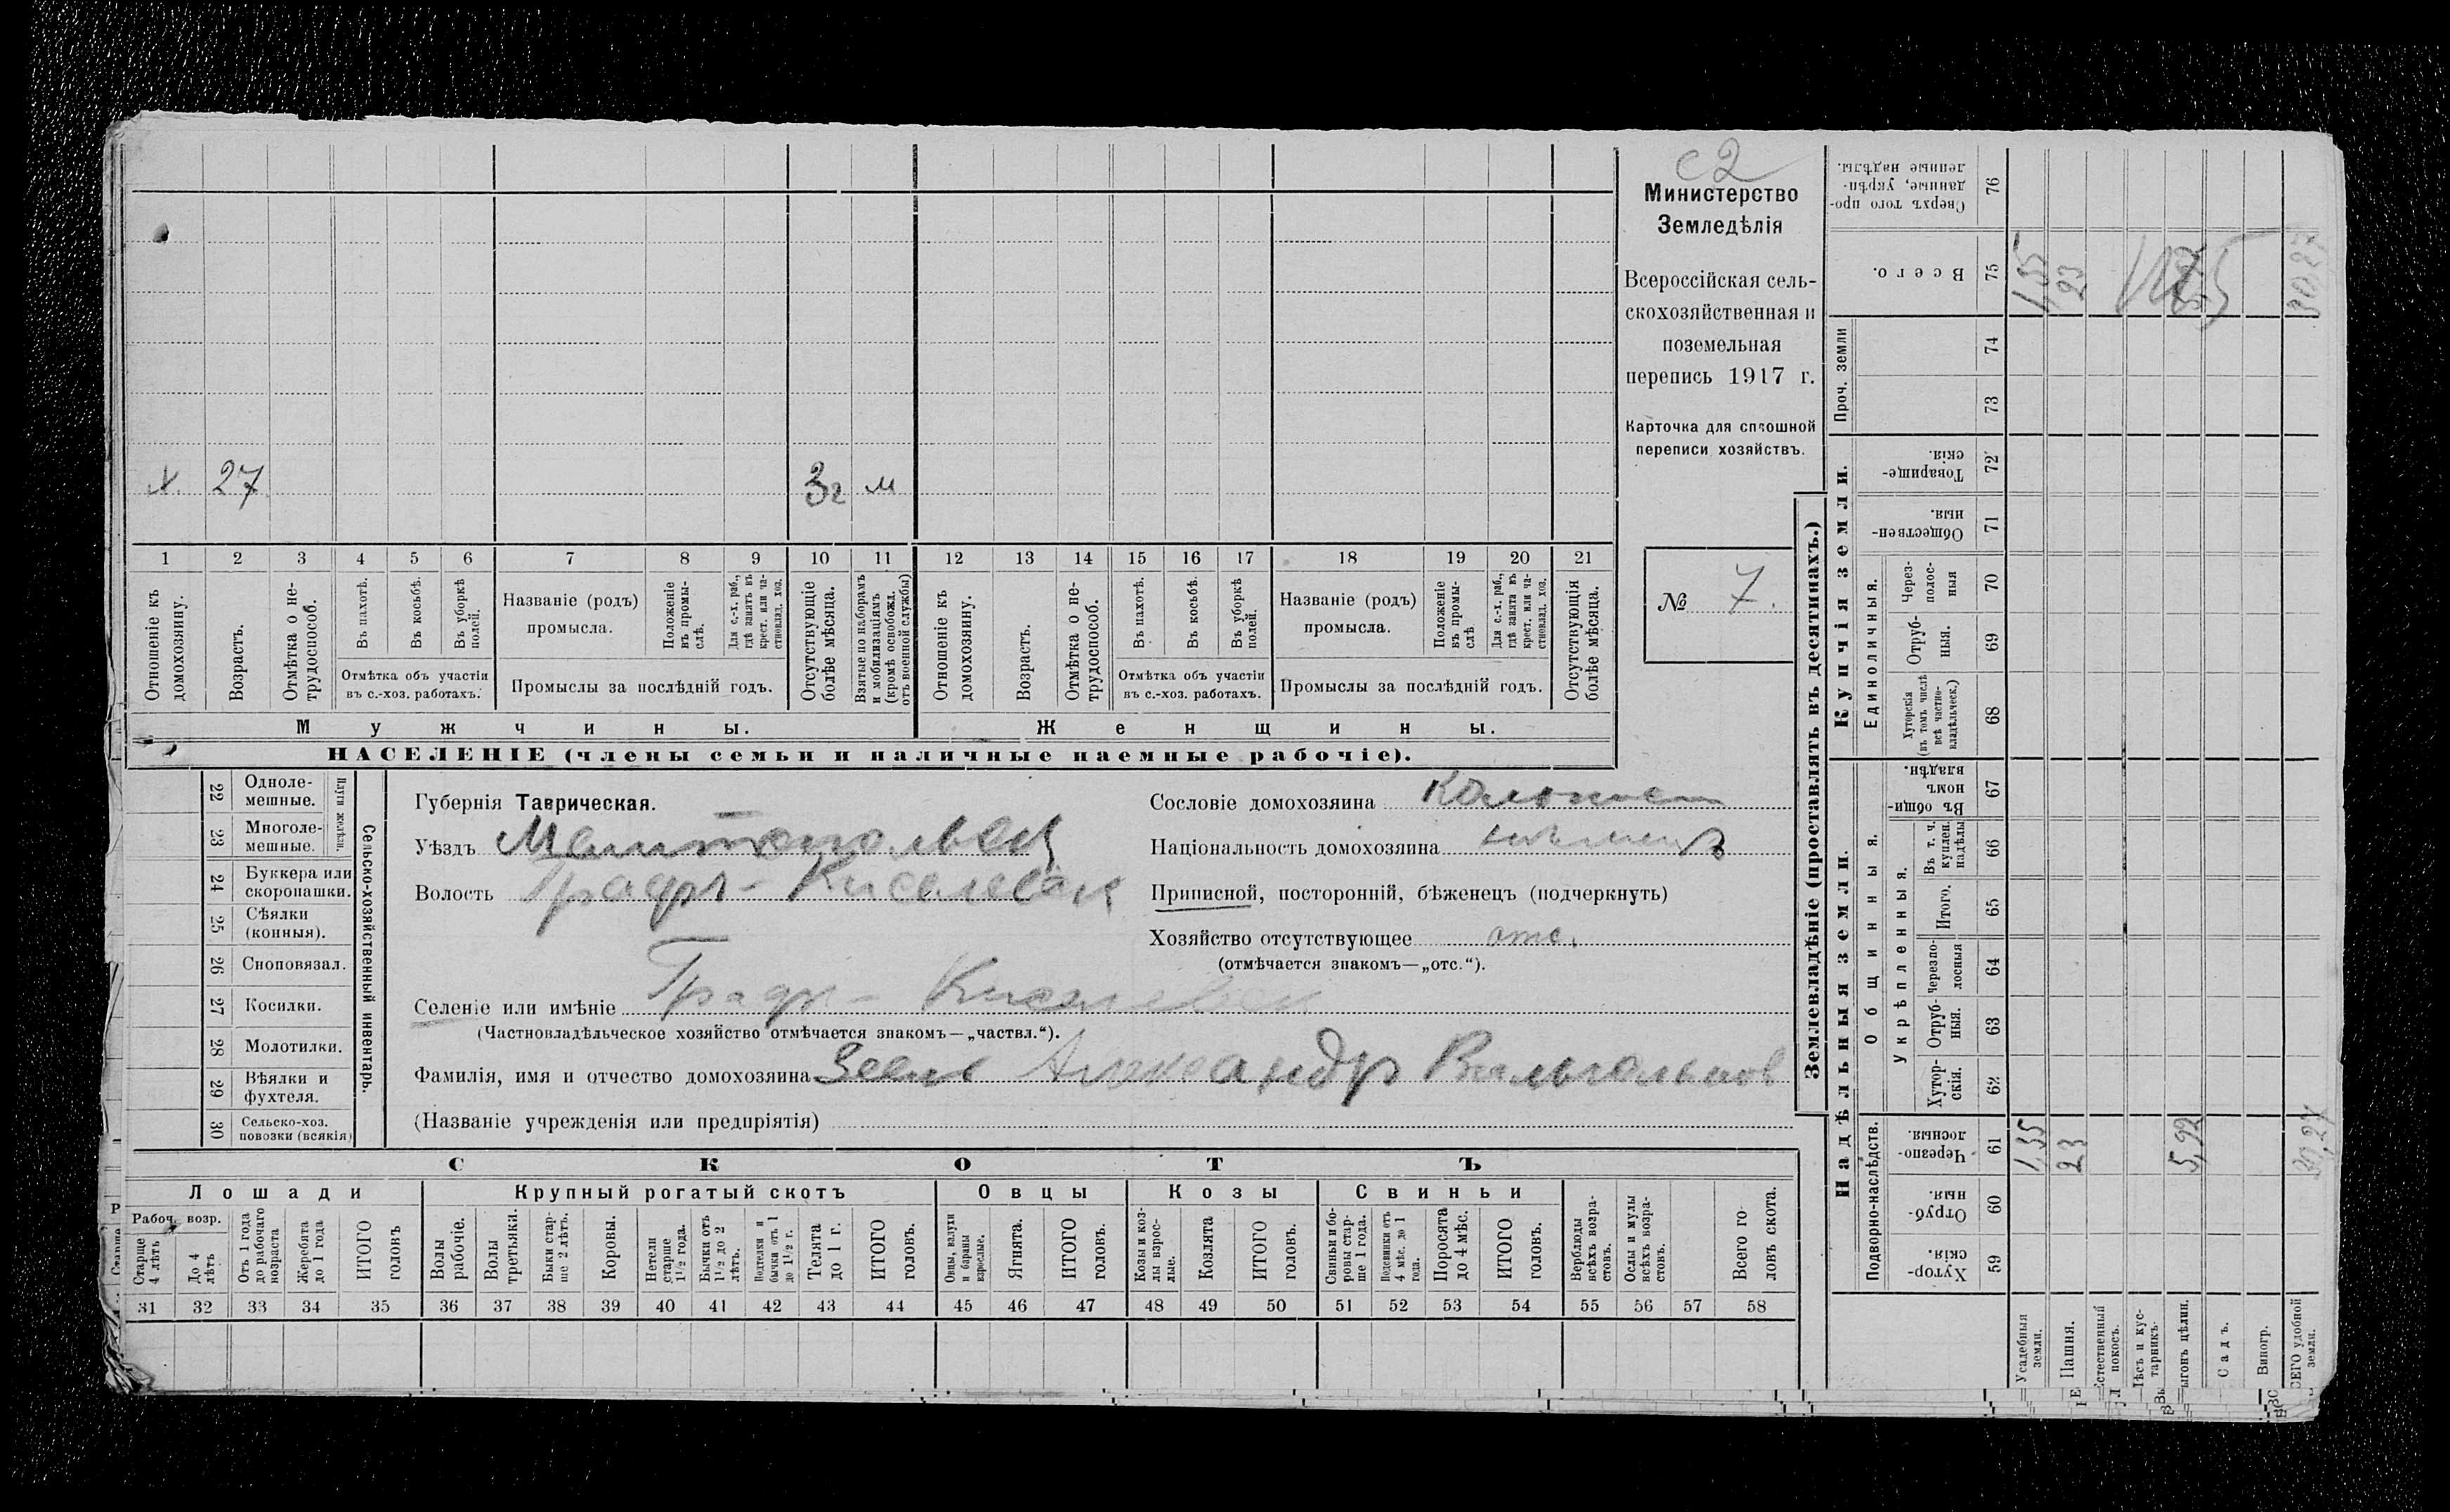 с2
Министерство
Земледѣлія
Всероссійская сель-
скохозяйственная и
поземельная
перепись 1917 г.
Карточка для сплошной
переписи хозяйствъ.
№ 7.
х. 27 3г м
1 2 3 4 5 6 7 8 9 10 11 12 13 14 15 16 17 18 19 20 21
Отношеніе къ домохозяину.
Возрастъ.
Отмѣтка о не-трудоспособ.
Въ пахотѣ.
Въ косьбѣ.
Въ уборкѣ полей.
Отмѣтка объ участіи
въ с.-хоз. работахъ.
Названіе (родъ)
промысла.
Положеніе въ промы-слѣ.
Для с.-х. раб., гдѣ занятъ въ крест. или ча-стновлад. хоз.
Промыслы за послѣдній годъ.
Отсутствующіе болѣе мѣсяца.
Взятые по наборамъ и мобилизаціямъ (кромѣ освобожд. отъ военной службы)
Отношеніе къ домохозяину.
Возрастъ.
Отмѣтка о не-трудоспособ.
Въ пахотѣ.
Въ косьбѣ.
Въ уборкѣ полей.
Отмѣтка объ участіи
въ с.-хоз. работахъ.
Названіе (родъ)
промысла.
Положеніе въ промы-слѣ
Для с.-х. раб., гдѣ занята въ крест. или ча-стновлад. хоз.
Промыслы за послѣдній годъ.
Отсутствующія болѣе мѣсяца.
Мужчины. Женщины.
НАСЕЛЕНІЕ (члены семьи и наличные наемные рабочіе).
22 Одноле-мешные.
23 Многоле-мешные.
Плуги желѣзн.
24 Буккера или скоропашки.
25 Сѣялки (конныя).
26 Сноповязал.
27 Косилки.
28 Молотилки.
29 Вѣялки и фухтеля.
30 Сельско-хоз. повозки (всякія)
Сельско-хозяйственный инвентарь.
Губернія Таврическая.
Уѣздъ Мелитопольск
Волость Графъ-Киселевск
Селеніе или имѣніе Графъ-Киселевск
(Частновладѣльческое хозяйство отмѣчается знакомъ—„частвл.“).
Фамилія, имя и отчество домохозяина Александр
(Названіе учрежденія или предпріятія)
Сословіе домохозяина колонист
Національность домохозяина нѣмецъ
Приписной, посторонній, бѣженецъ (подчеркнуть)
Хозяйство отсутствующее отс.
(отмѣчается знакомъ—„отс.“).
СКОТЪ
Лошади Крупный рогатый скотъ Овцы Козы Свиньи
Рабоч. возр.
Старше 4 лѣтъ
До 4 лѣтъ
Отъ 1 года до рабочаго возраста
Жеребята до 1 года
ИТОГО головъ
Волы рабочіе.
Волы третьяки.
Быки стар-ше 2 лѣтъ.
Коровы.
Нетели старше 1½ года.
Бычки отъ 1½ до 2 лѣтъ.
Подтелки и бычки отъ 1 до 1½ г.
Телята до 1 г.
ИТОГО головъ.
Овцы, валухи и бараны взрослые.
Ягнята.
ИТОГО головъ.
Козы и коз-лы взрос-лые.
Козлята
ИТОГО головъ.
Свиньи и бо-ровы стар-ше 1 года.
Подсвинки отъ 4 мѣс. до 1 года.
Поросята до 4 мѣс.
ИТОГО головъ.
Верблюды всѣхъ возра-стовъ.
Ослы и мулы всѣхъ возра-стовъ.
Всего го-ловъ скота.
31 32 33 34 35 36 37 38 39 40 41 42 43 44 45 46 47 48 49 50 51 52 53 54 55 56 57 58
Землевладѣніе (проставлять въ десятинахъ.)
Надѣльныя земли. Купчія земли. Проч. земли
Подворно-наслѣдств.
Общинныя.
Укрѣпленныя.
Единоличныя.
Хутор-скія. 59
Отруб-ныя. 60
Черезпо-лосныя. 61
Хутор-скія. 62
Отруб-ныя. 63
Черезпо-лосныя 64
Итого. 65
Въ т. ч. куплен. надѣлы 66
Въ общи-номъ владѣн. 67
Хуторскія (въ томъ числѣ всѣ частно-владѣльческ.) 68
Отруб-ныя. 69
Через-полос-ныя 70
Обществен-ныя. 71
Товарище-скія. 72
73
74
Всего. 75
Сверхъ того про-данные, укрѣп-ленные надѣлы. 76
Усадебныя земли. 1,35 1,35
Пашня. 23 23
Естественный покосъ.
Лѣсъ и кус-тарникъ.
Выгонъ цѣлин. 5,92
Садъ.
Виногр.
ВСЕГО удобной земли. 30,27 30,27